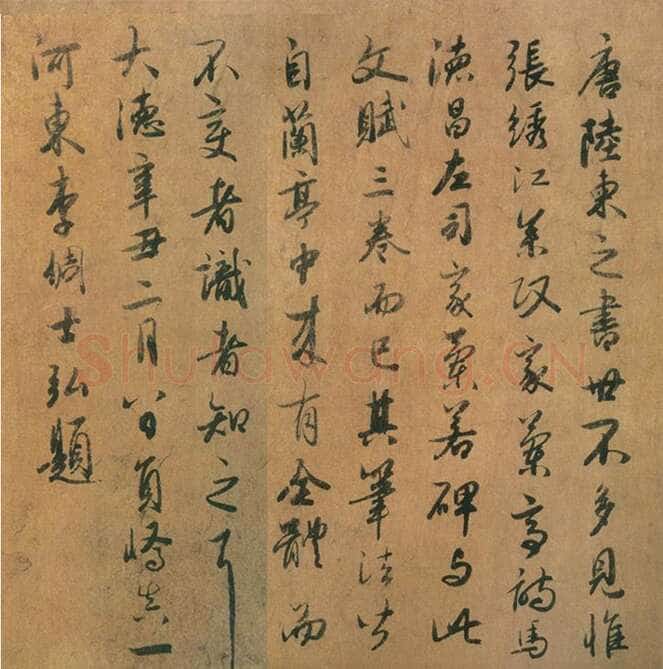 唐陸柬之書世不多見惟
張綉江參政家蘭亭詩馬
德昌左司家蘭若碑与此
文賦三卷而已其筆法皆
自蘭亭中來有全體而
不变者識者知之耳
大德辛丑二月八日員嶠真一
河東李倜士弘題
Shufawang.CN